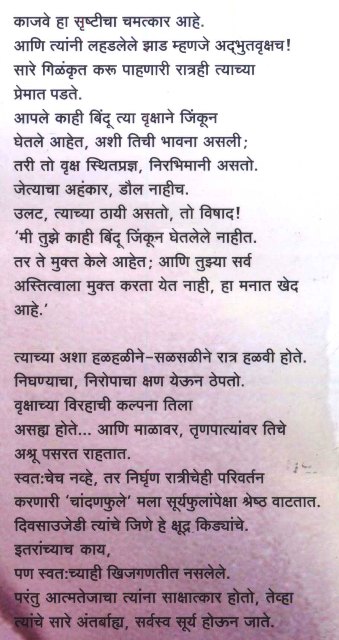 काजवे हा सृष्टीचा चमत्कार आहे.
आणि त्यांनी लहडलेले झाड म्हणजे अद्‌भुतवृक्षच!
सारे गिळंकृत करू पाहणारी रात्रही त्याच्या
प्रेमात पडते.
आपले काही बिंदू त्या वृक्षाने जिंकून
घेतले आहेत, अशी तिची भावना असली;
तरी तो वृक्ष स्थितप्रज्ञ, निरभिमानी असतो.
जेत्याचा अहंकार, डौल नाहीच.
उलट, त्याच्या ठायी असतो, तो विषाद!
'मी तुझे काही बिंदू जिंकून घेतलेले नाहीत.
तर ते मुक्त केले आहेत; आणि तुझ्या सर्व
अस्तित्वाला मुक्त करता येत नाही, हा मनात खेद
आहे.'
त्याच्या अशा हळहळीने-सळसळीने रात्र हळवी होते.
निघण्याचा, निरोपाचा क्षण येऊन ठेपतो.
वृक्षाच्या विरहाची कल्पना तिला
असह्य होते... आणि माळावर, तृणपात्यांवर तिचे
अश्रू पसरत राहतात.
स्वत:चेच नव्हे, तर निर्घृण रात्रीचेही परिवर्तन
करणारी 'चांदणफुले' मला सूर्यफुलांपेक्षा श्रेष्ठ वाटतात.
दिवसाउजेडी त्यांचे जिणे हे क्षूद्र किड्यांचे.
इतरांच्याच काय,
पण स्वत:च्याही खिजगणतीत नसलेले.
परंतु आत्मतेजाचा त्यांना साक्षात्कार होतो, तेव्हा
त्यांचे सारे अंतर्बाह्य, सर्वस्व सूर्य होऊन जाते.